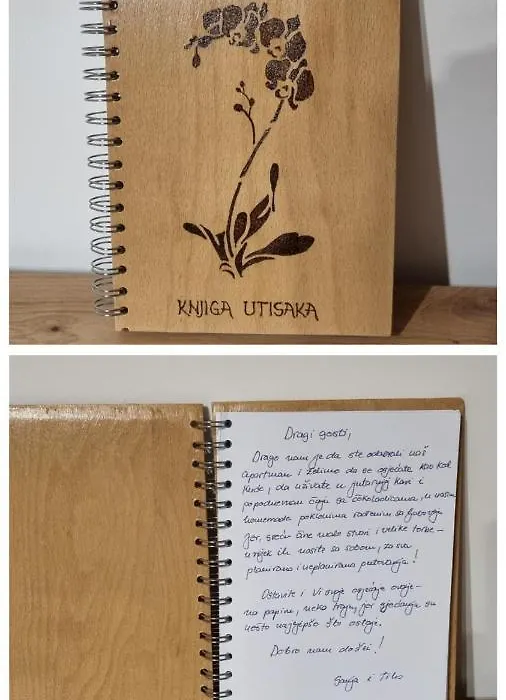 KNJIGA UTISAKA
Dragi gosti,
Drago nam je da ste odabrali naš
apartman i želimo da se osjećate kao kod
kuće, da uživate u jutarnjoj kavi i
popodnevnom čaju sa čokoladicama, u našim
homemade poklonima rađenim sa ljubavlju
jer, sreću čine male stvari i velike torbe -
uvijek ih nosite sa sobom, za sva
planirana i neplanirana putovanja!
Ostavite i Vi svoje osjećaje ovdje -
na papiru, neka traju, jer sjećanja su
nešto najljepše što ostaje.
Dobro nam došli!
Sanja i